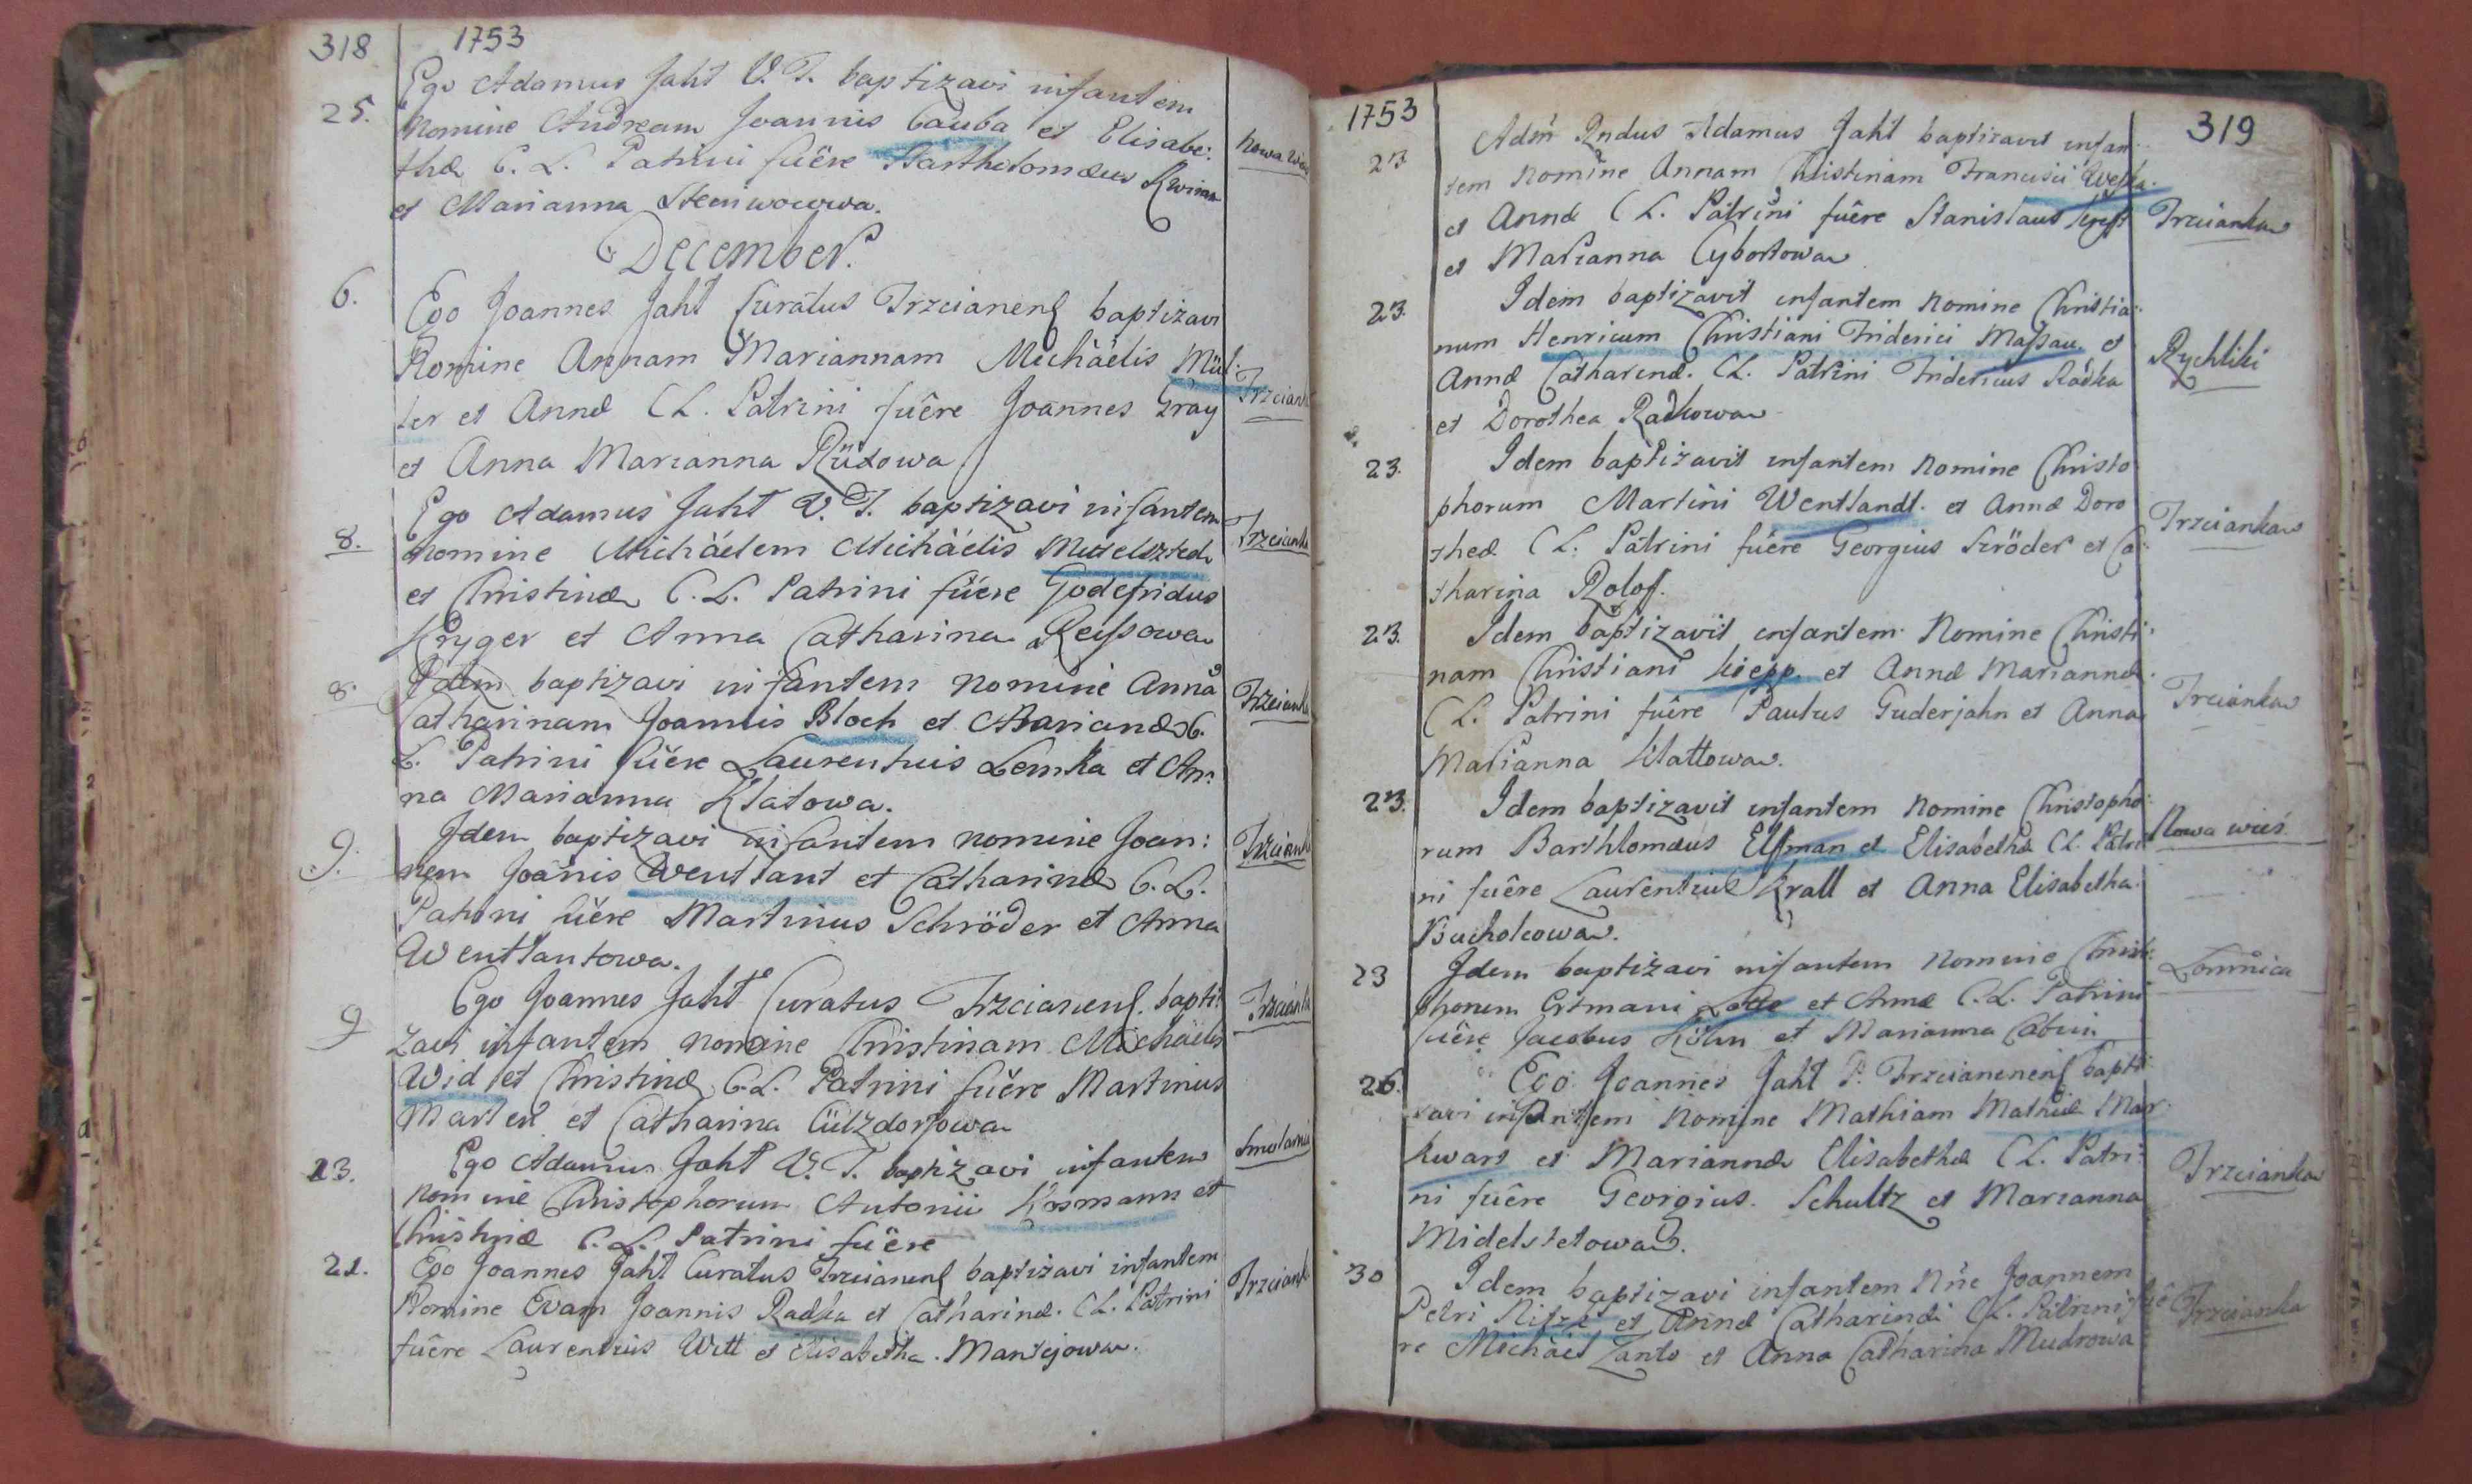 318 1753
Ego Adamus Jaht V. T. baptizavi infantem
25. Nomine Andream Joannis Cauba et Elisabe:
thæ C. L. Patrini fuêre Bartholomæus Kwiran
et Marianna Steinwocowa.
Nowa wieś
December.
6. Ego Joannes Jaht Curatus Trzcianenſ baptizavi
Nomine Annam Mariannam Michäelis Mül:
ler et Annæ CL. Patrini fuêre Joannes Gray
Trzcianka
et Anna Marianna Rüdowa
Ego Adamus Jaht V. T. baptizavi infantem
8. nomine Michäelem Michäelis Mitelsztedt
Trzcianka
et Christinæ C. L. Patrini fuêre Godefridus
Kryger et Anna Catharina Reissowa
8. Idem baptizavi infantem nomine Anna
Trzcianka
Catharinam Joannis Bloch et Marianæ C.
L. Patrini fuêre Laurentius Lemka et An:
na Marianna Klatowa.
Idem baptizavi infantem nomine Joan:
9. nem Joanis Wentlant et Catharinæ C. L.
Trzcianka
Patrini fuêre Martinus Schröder et Anna
Wentlantowa.
Ego Joannes Jaht Curatus Trzcianenſ. bapti:
9 zavi infantem nomine Christinam Michäelis
Trzcianka
Wid et Christinæ C. L. Patrini fuêre Martinus
Marten et Catharina Cülzdorfowa
Ego Adamus Jaht V. T. baptizavi infantem
Smolarnia
13. nomine Christophorum Antonii Kosmann et
Christinæ C. L. Patrini fuêre
21. Ego Joannes Jaht Curatus Trzcianenſ baptizavi infantem
Nomine Evam Joannis Radka et Catharinæ. CL. Patrini
Trzcianka
fuêre Laurentius Witt et Elisabetha Mantejowa.
1753 319
Adm̃ Rndus Adamus Jaht baptizavit infan:
23. tem Nomine Annam Christinam Francisci Weska
et Annæ CL. Patrini fuêre Stanislaus
Trzcianka
et Marianna Cybortowa
23. Idem baptizavit infantem Nomine Christia:
num Henricum Christiani Friderici Massau et
Rychliki
Annæ Catharinæ. CL. Patrini Fridericus Radka
et Dorothea Radkowa
23. Idem baptizavit infantem Nomine Christo
phorum Martini Wentlandt. et Annæ Doro
Trzcianka
theæ CL. Patrini fuêre Georgius Scröder et Ca:
tharina Rolof.
23. Idem baptizavit infantem Nomine Christi:
nam Christiani Kiepp. et Annæ Mariannæ
Trcianka
CL. Patrini fuêre Paulus Guderjahn et Anna
Marianna Klattowa.
23. Idem baptizavit infantem Nomine Christopho:
rum Barthlomæus Elsman et Elisabethæ CL. Patri
Nowa wieś
ni fuêre Laurentius Krall et Anna Elisabetha
Bucholcowa.
23 Idem baptizavi infantem Nomine Christo:
Łomnica
phorum Ertmani Lotto et Annæ C. L. Patrini
fuêre Jacobus Köhn et Marianna Cabuin
26. Ego Joannes Jaht P. Trzcianenenſ bapti
zavi infantem Nomine Mathiam Mathiæ Mar:
kwart et Mariannæ Elisabethæ CL. Patri:
Trzcianka
ni fuêre Georgius. Schultz et Marianna
Midelstetowa.
30 Idem baptizavi infantem Nñe Joannem
Petri Nitzki et Annæ Catharinæ CL. Patrini fuê
Trzcianka
re Michäel Zanto et Anna Catharina Mudrowa